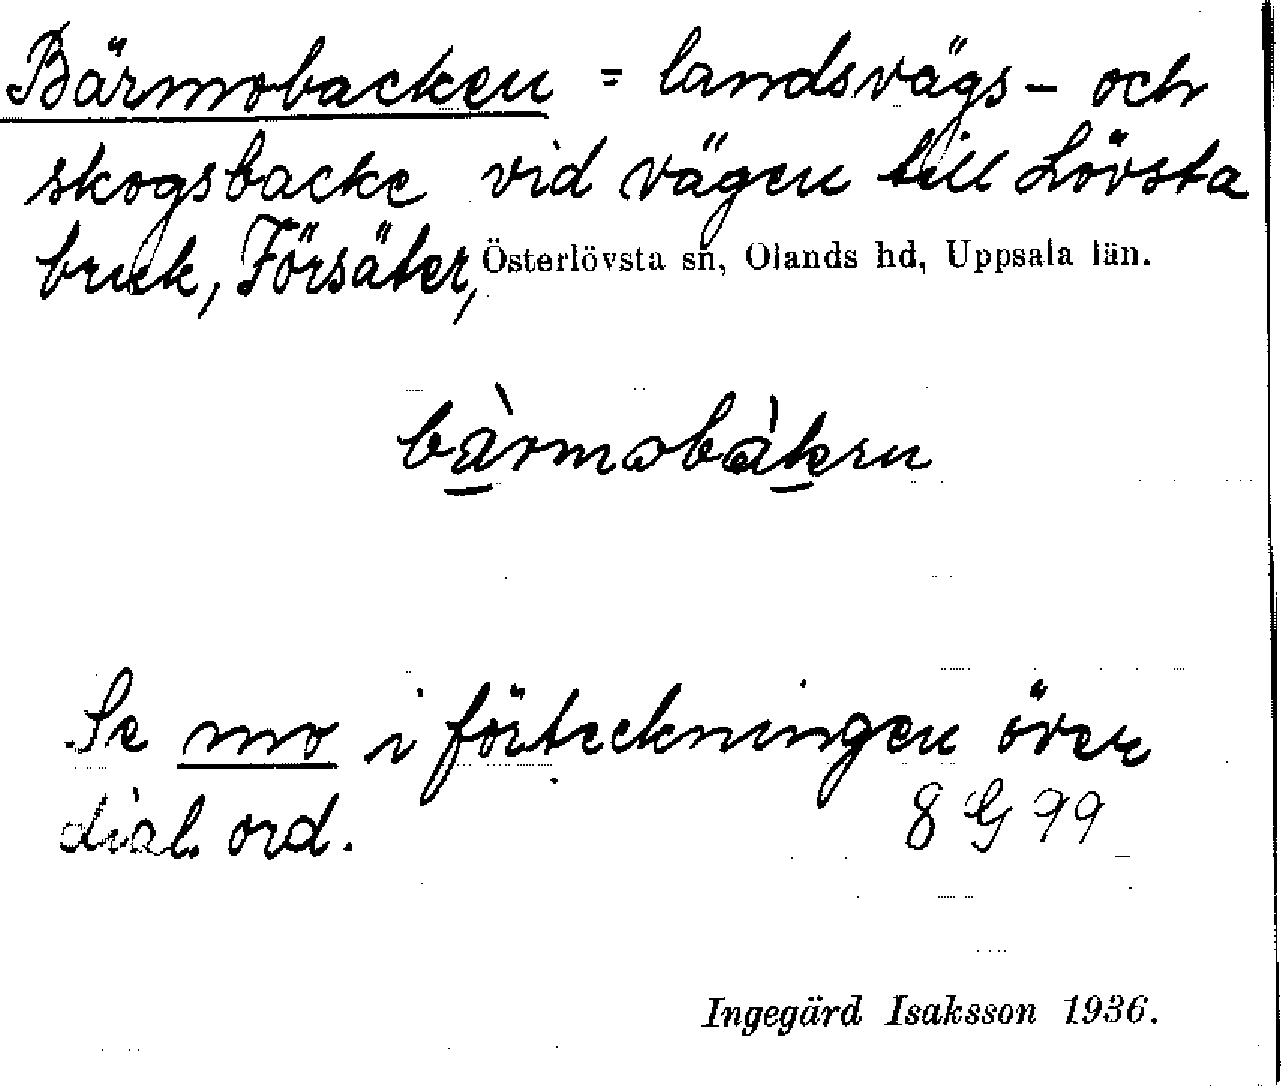 Bärmobacken = landsvägs- och
skogsbacke vid vägen till Lövsta
bruk, Försäter, Österlövsta sn, Olands hd, Uppsala län.
bàrmobàken
Se mo i förteckningen över
dial. ord. 8 G 99
Ingegärd Isaksson 1936.